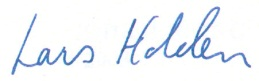 Lars Holden